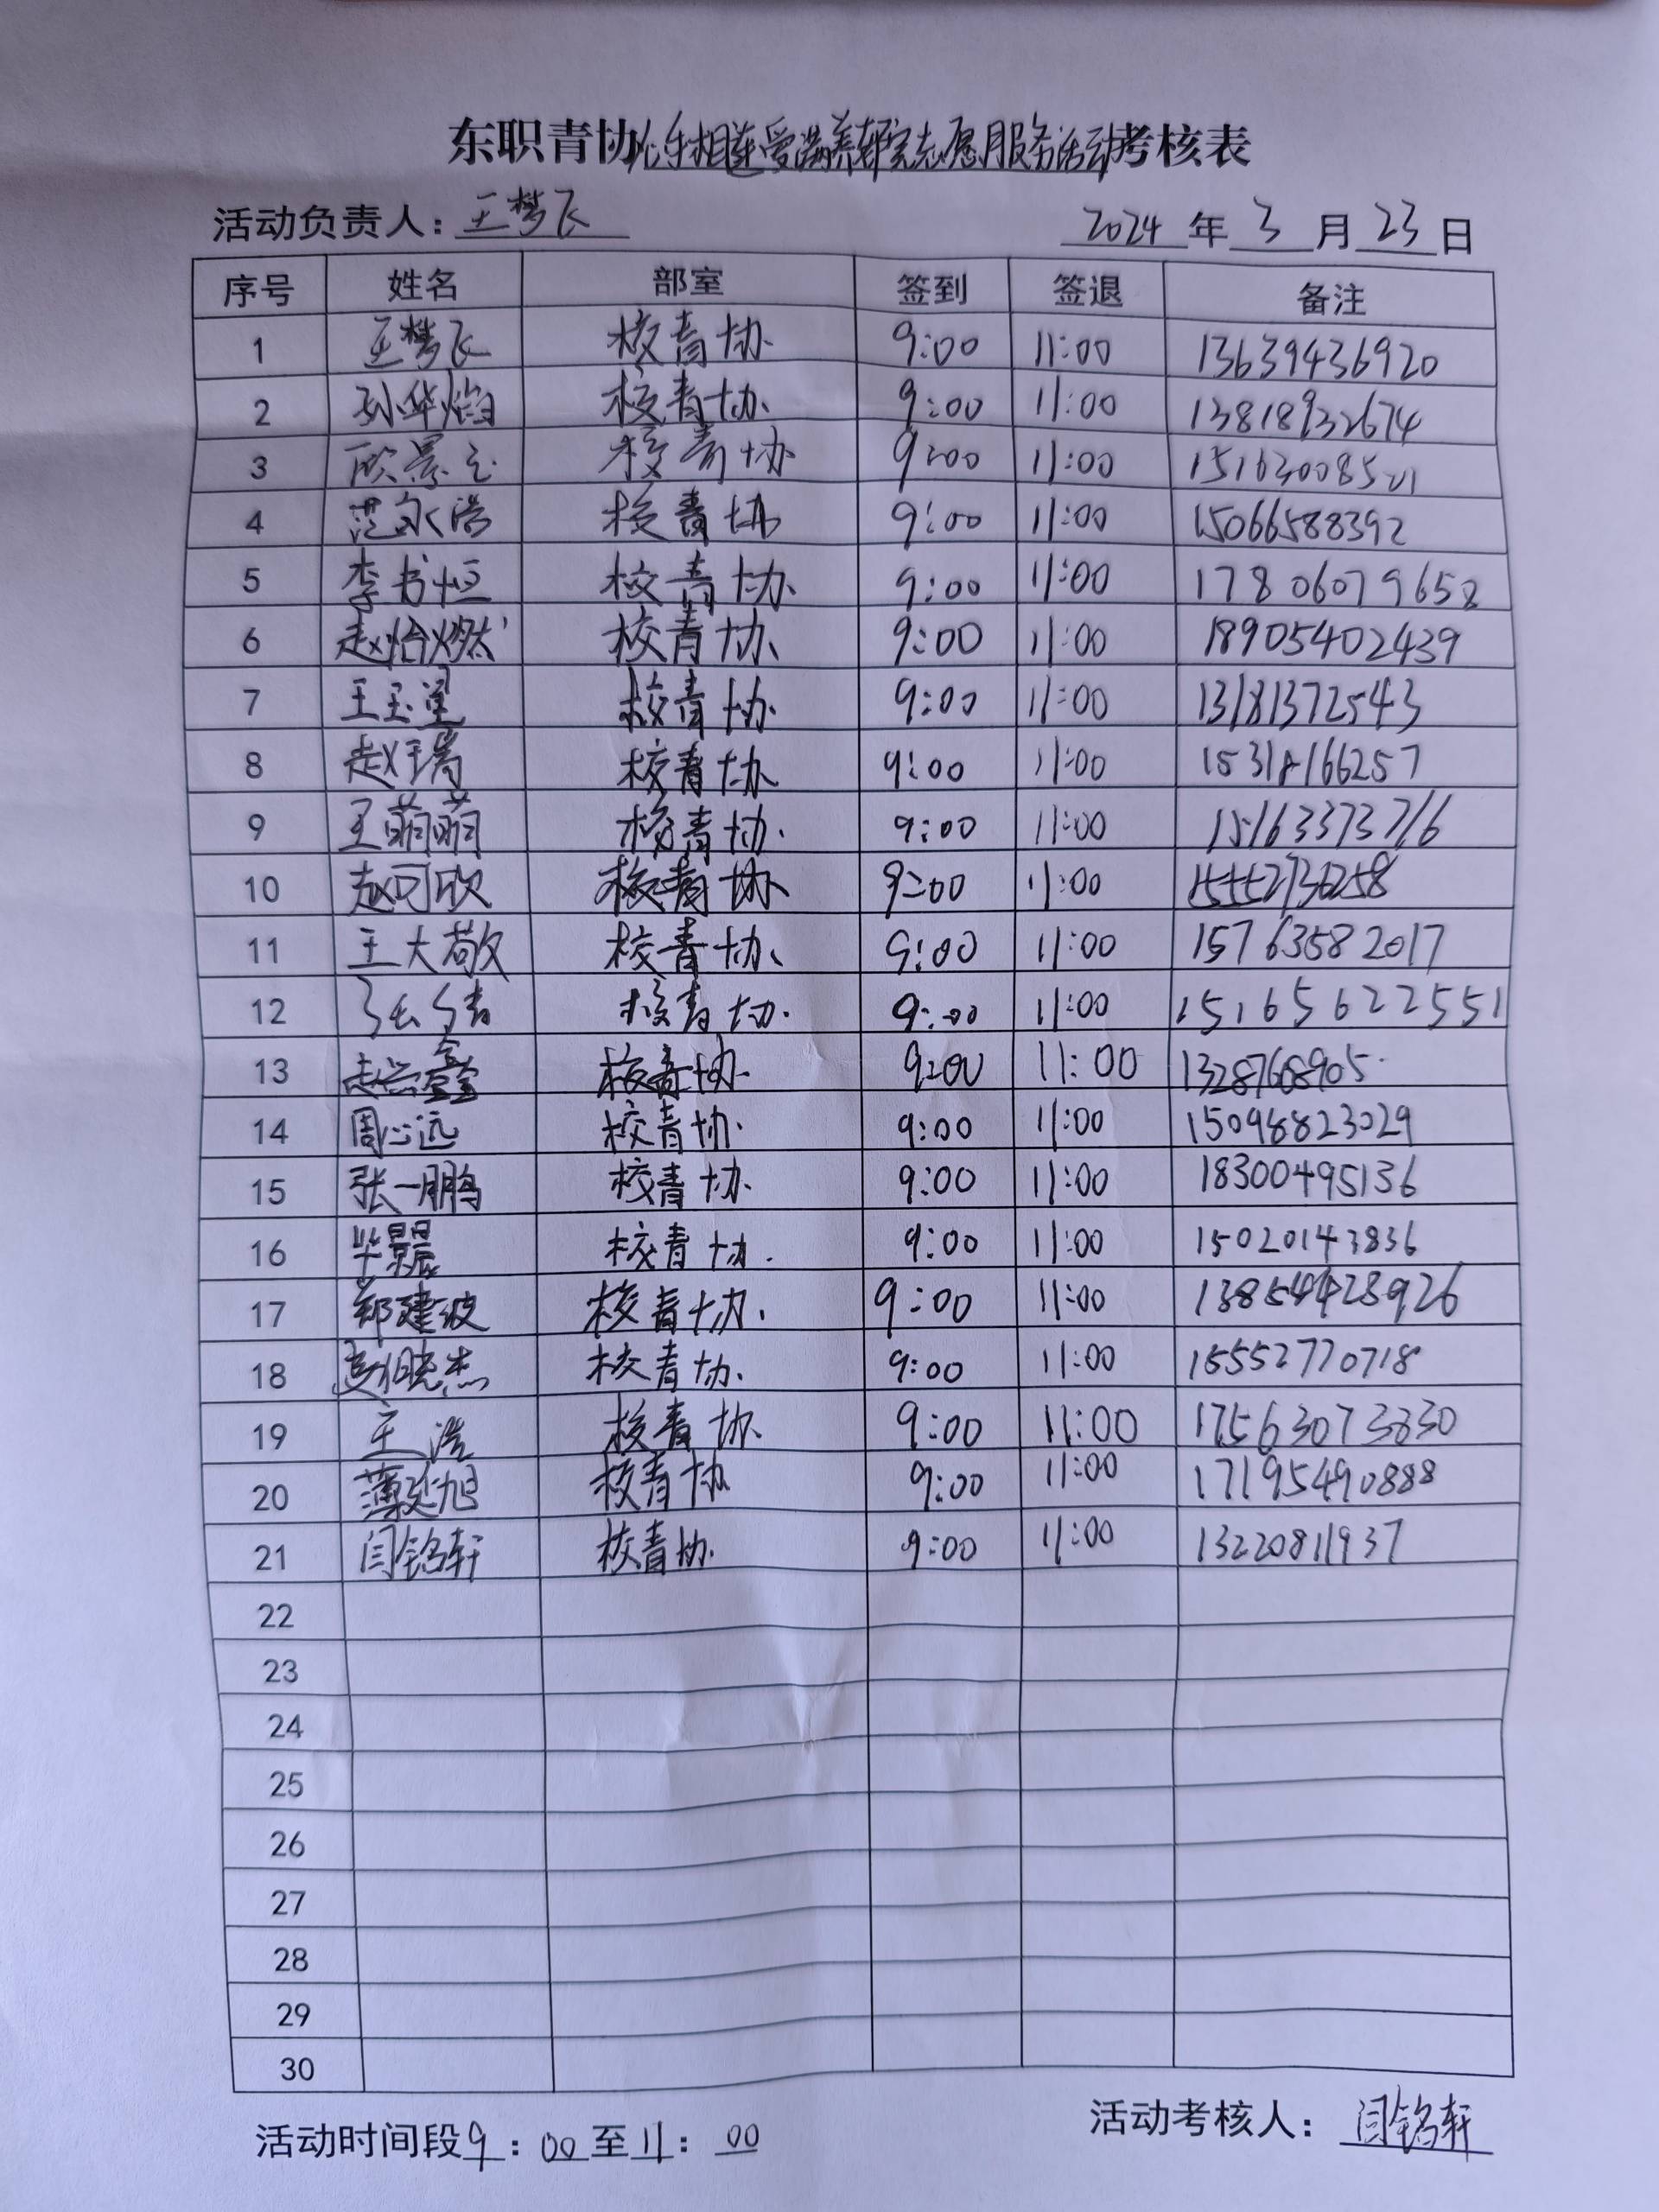 东职青协心手相连爱满养老院志愿服务活动考核表
活动负责人：王梦飞 2024年3月23日
序号 姓名 部室 签到 签退 备注
1 王梦飞 校青协 9:00 11:00 13639436920
2 孙华焰 校青协 9:00 11:00 13818932674
3 校青协 9:00 11:00
4 范永浩 校青协 9:00 11:00 15066588392
5 李书恒 校青协 9:00 11:00 17806079652
6 赵怡燃 校青协 9:00 11:00 18905402439
7 王玉莹 校青协 9:00 11:00 13181372543
8 赵瑞 校青协 9:00 11:00 15318166257
9 王萌萌 校青协 9:00 11:00 15163373716
10 赵可欣 校青协 9:00 11:00
11 王大敬 校青协 9:00 11:00 15763582017
12 张倩 校青协 9:00 11:00 15165622551
13 赵益鑫 校青协 9:00 11:00 1328768905
14 周心远 校青协 9:00 11:00 15098823029
15 张一鹏 校青协 9:00 11:00 18300495136
16 毕晨 校青协 9:00 11:00 15020143836
17 郑建波 校青协 9:00 11:00
18 晓杰 校青协 9:00 11:00 15552770718
19 王浩 校青协 9:00 11:00 17563073330
20 薄延旭 校青协 9:00 11:00 17195490888
21 闫铭轩 校青协 9:00 11:00 13220811937
22
23
24
25
26
27
28
29
30
活动时间段9：00至11：00 活动考核人：闫铭轩